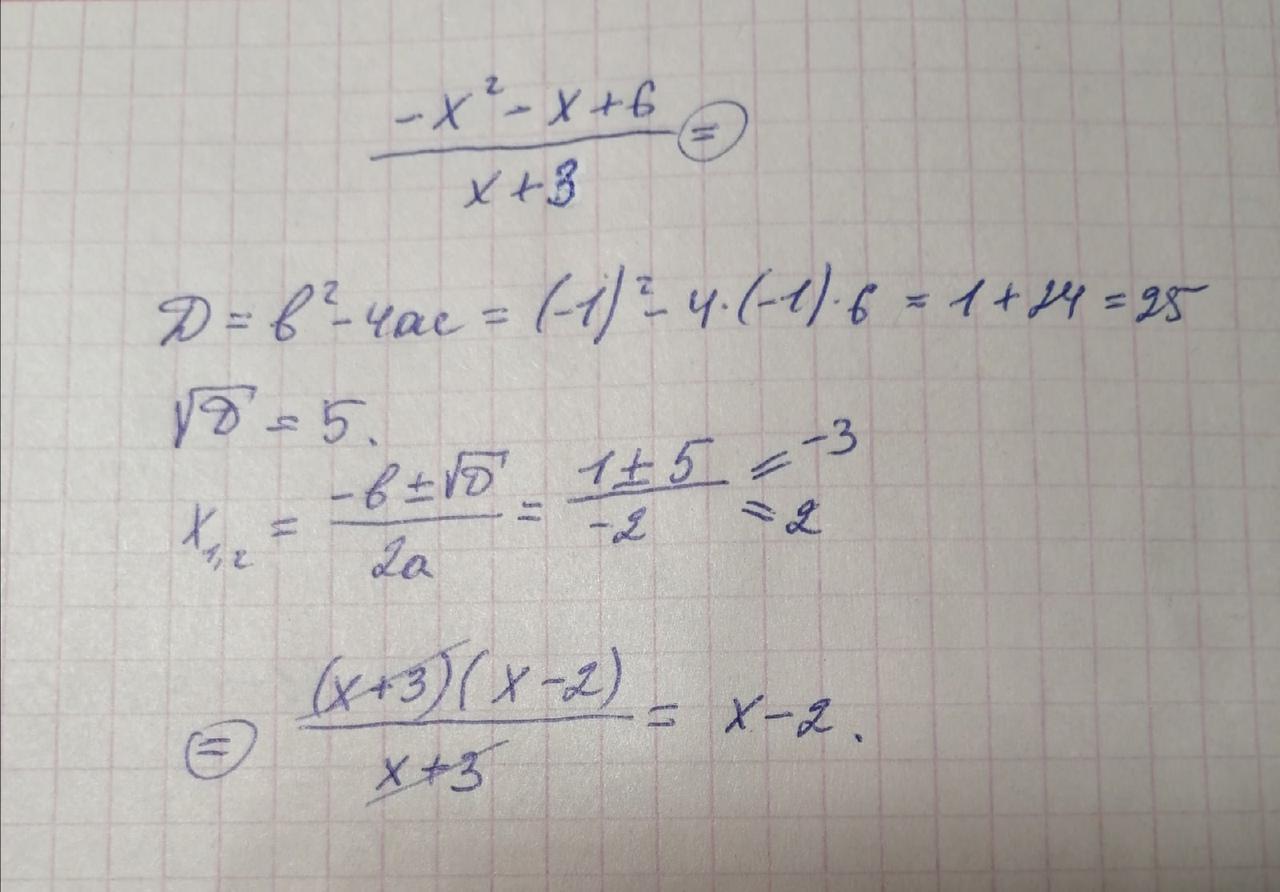 -x² - x + 6
x + 3
=
D = b² - 4ac = (-1)² - 4·(-1)·6 = 1 + 24 = 25
√D = 5.
x₁,₂ = (-b ± √D)/(2a) = (1 ± 5)/(-2) = -3
= 2
= (x+3)(x-2)/(x+3) = x - 2.